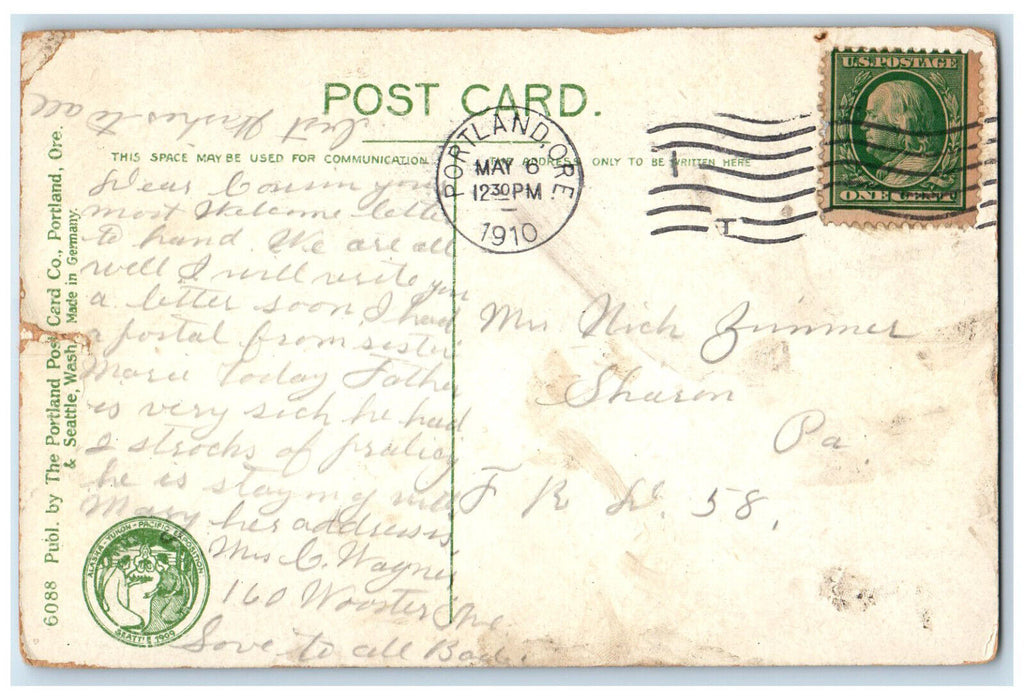 POST CARD.
THIS SPACE MAY BE USED FOR COMMUNICATION.
ADDRESS ONLY TO BE WRITTEN HERE
U.S. POSTAGE
ONE CENT
PORTLAND, ORE.
MAY 6
12 30 PM
1910
Best Wishes to all
Dear Cousin your
most Welcome lette
to hand. We are all
well I will write you
a letter soon, I had
a postal from sister
Marie today Father
is very sick he had
2 strocks of
he is staying with
Mary her address is,
Mrs C. Wagner
160 Wooster Ave.
Love to all
Mrs Nick Zimmer
Sharon
Pa.
F R D. 58,
6088 Publ. by The Portland Post Card Co., Portland, Ore.
& Seattle, Wash. Made in Germany.
ALASKA-YUKON-PACIFIC EXPOSITION
SEATTLE 1909